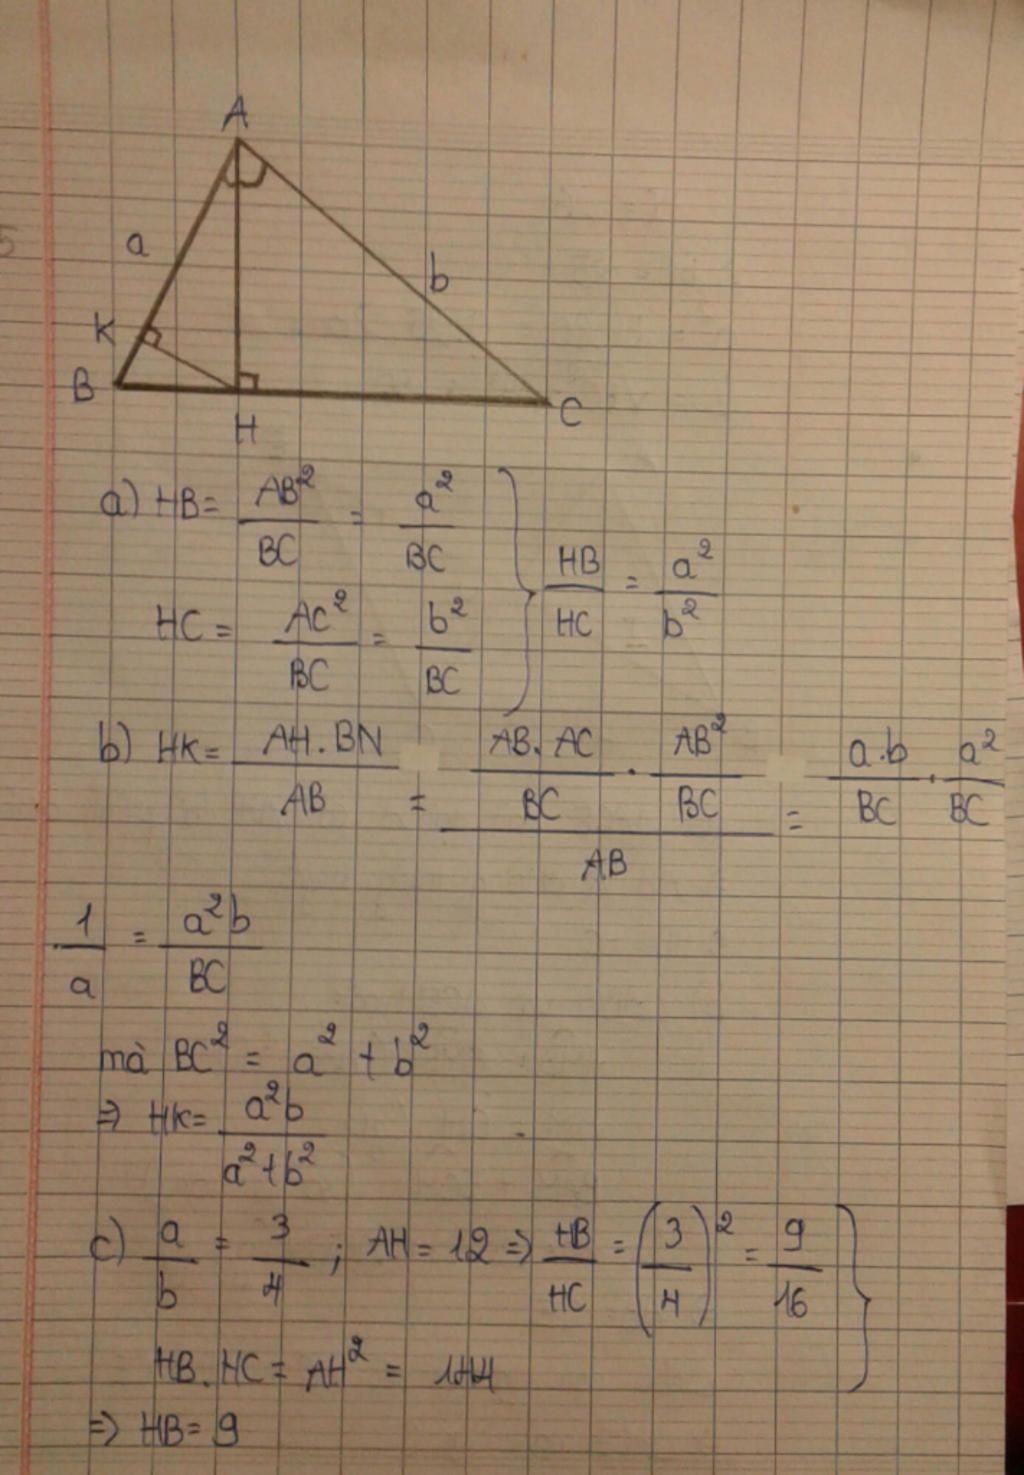 A
a
b
K
B
H
C
a) HB = AB²/BC = a²/BC
HC = AC²/BC = b²/BC } HB/HC = a²/b²
b) HK = AH.BN/AB = (AB.AC/BC . AB²/BC)/AB = a.b/BC . a²/BC
1/a = a²b/BC
mà BC² = a² + b²
=> HK = a²b/a²+b²
c) a/b = 3/4 ; AH = 12 => HB/HC = (3/4)² = 9/16 }
HB.HC = AH² = 144
=> HB = 9